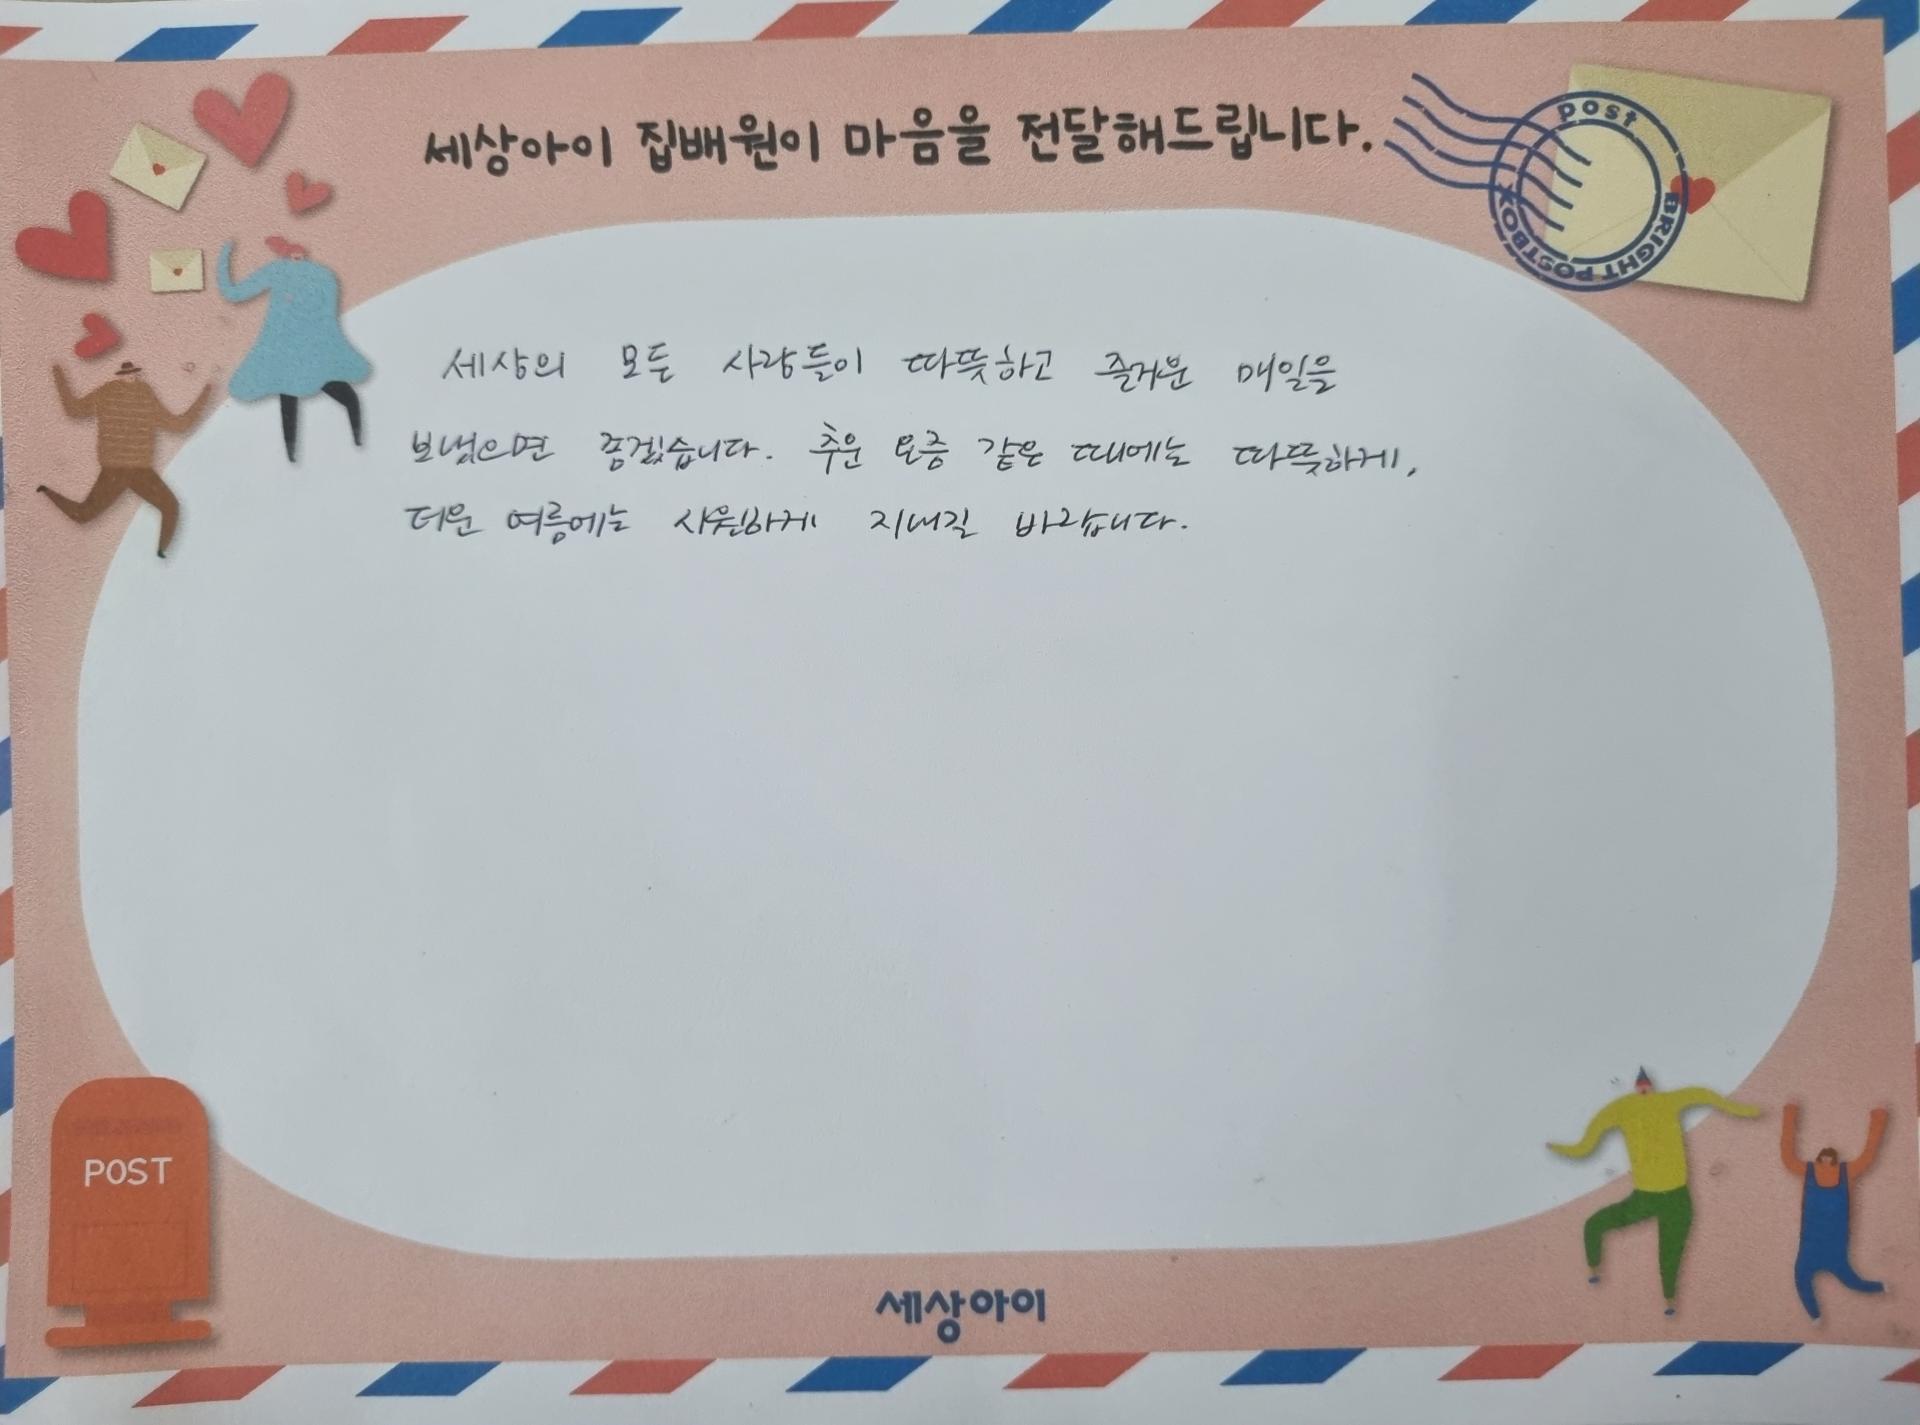 세상아이 집배원이 마음을 전달해드립니다.
POST
BRIGHT POSTBOX
세상의 모든 사람들이 따뜻하고 즐거운 매일을
보냈으면 좋겠습니다. 추운 요즘 같은 때에는 따뜻하게,
더운 여름에는 시원하게 지내길 바랍니다.
POST
세상아이